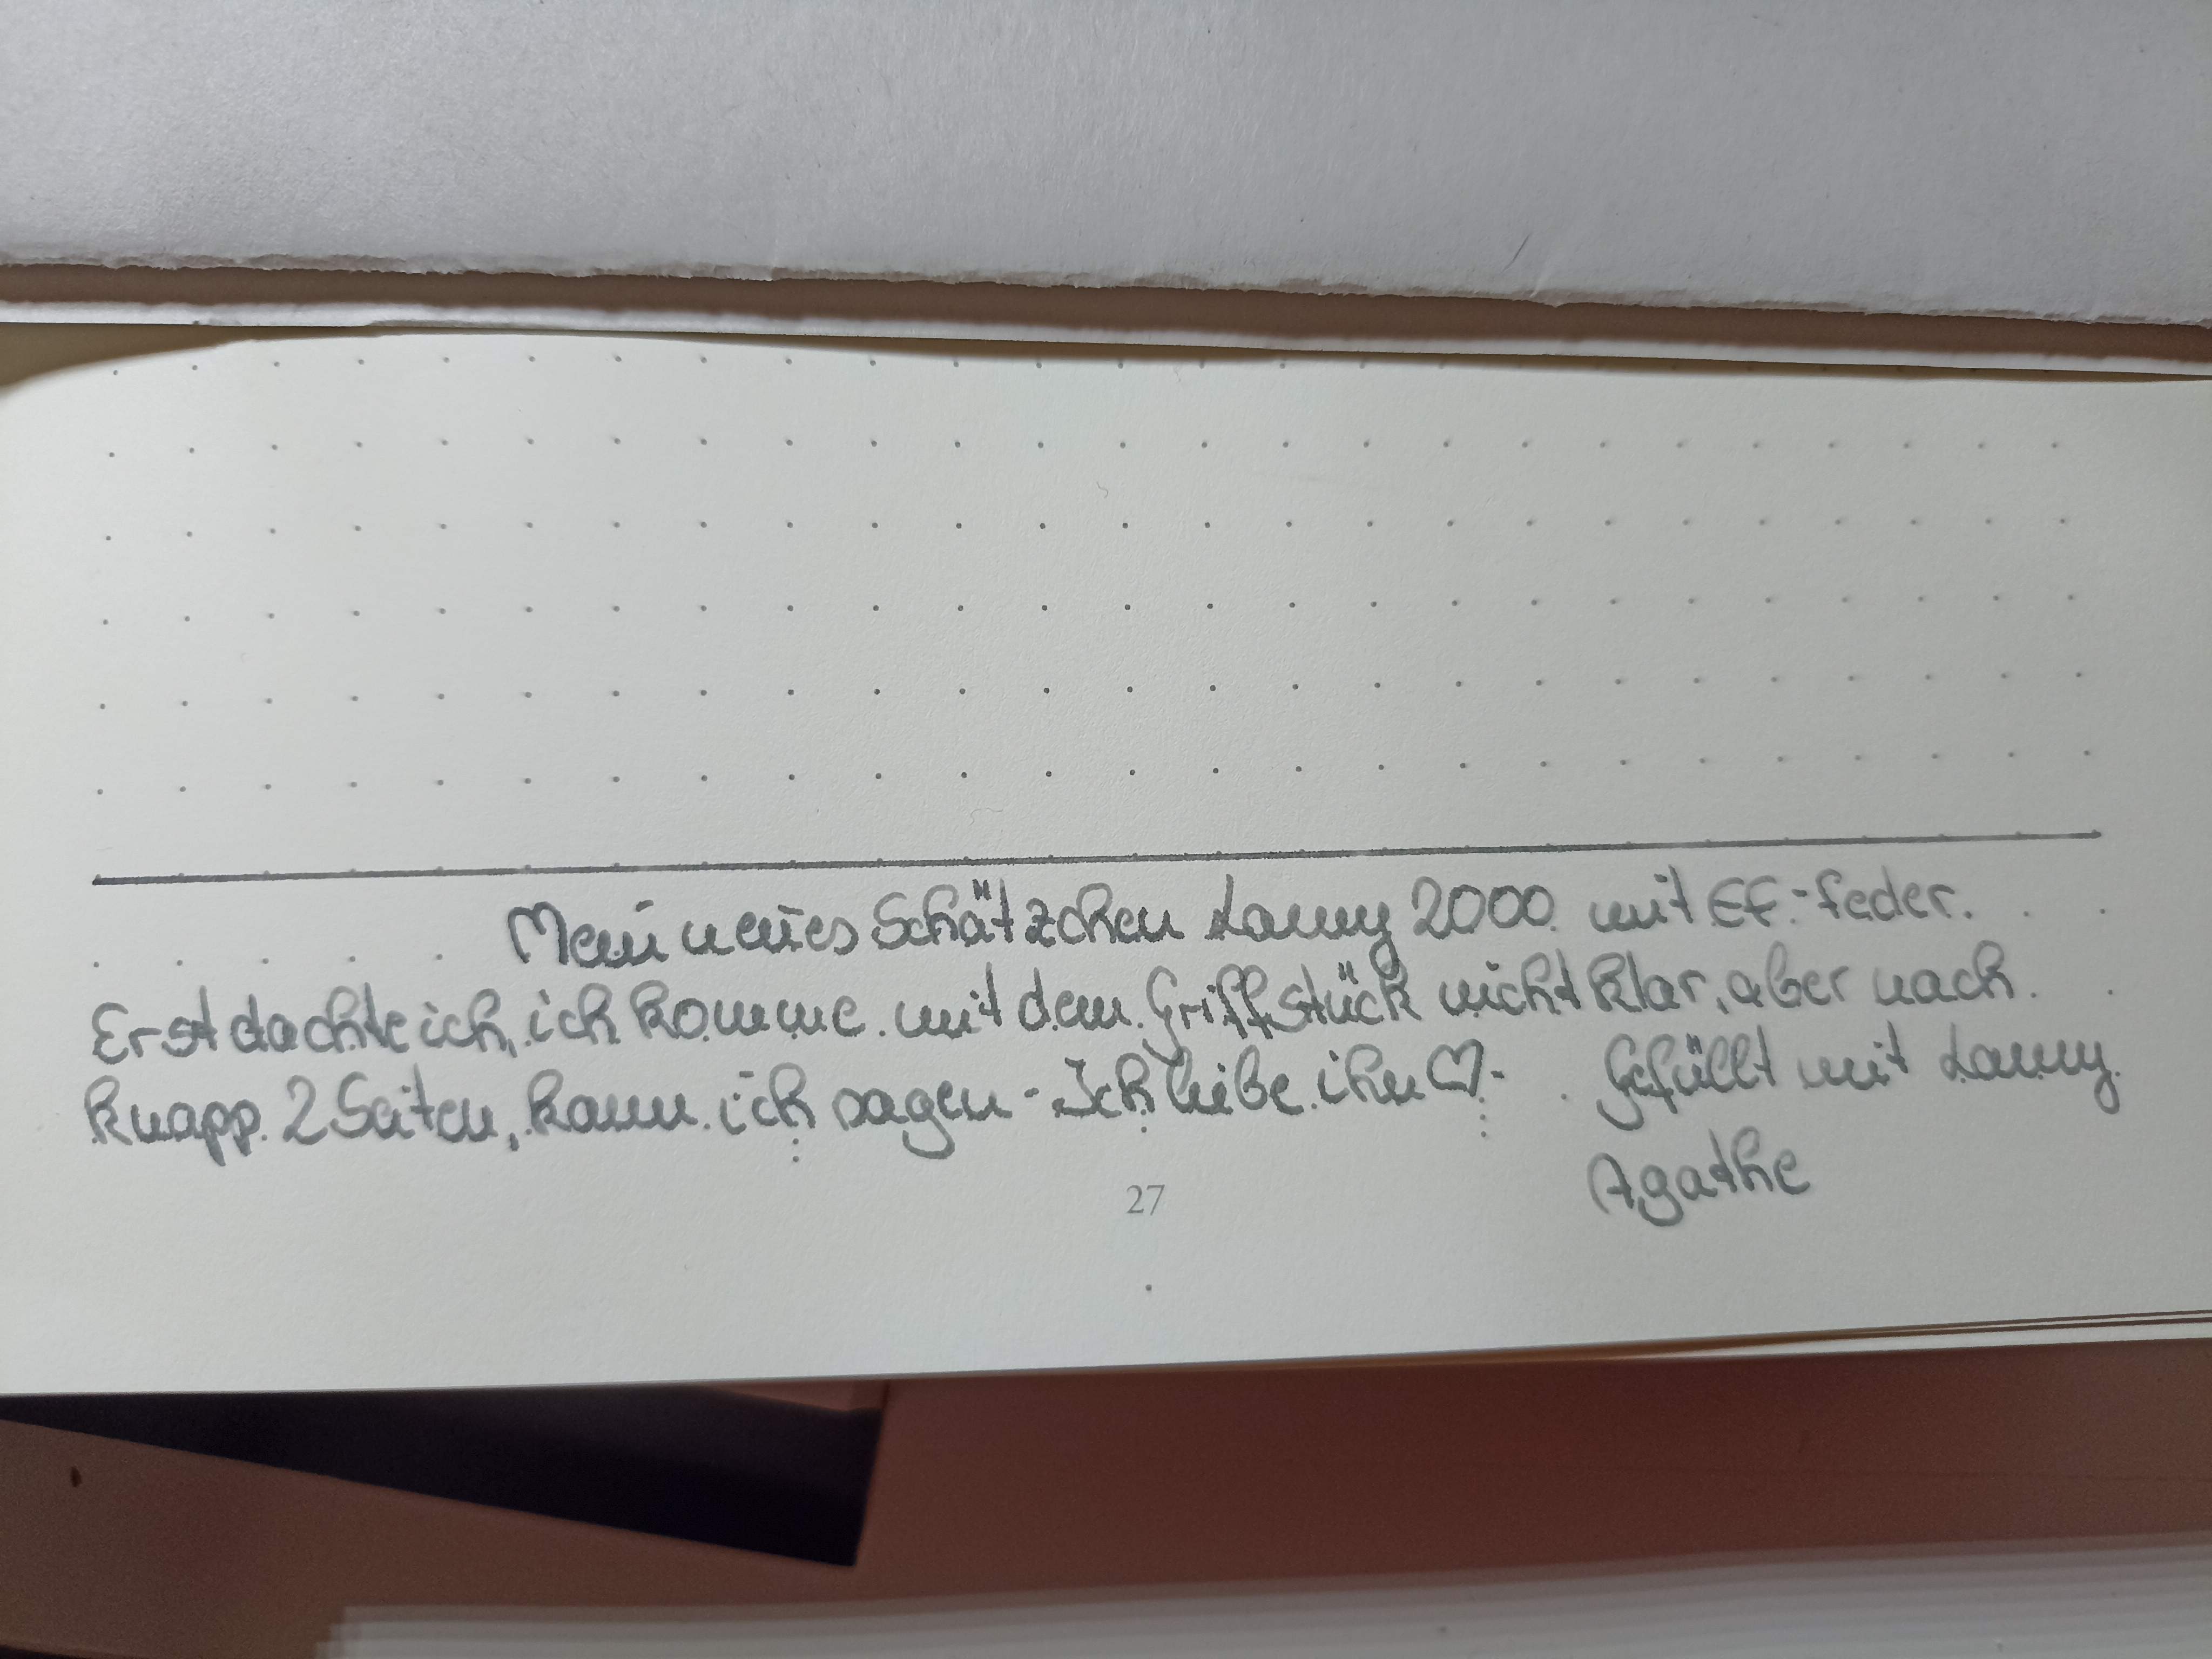 Mein neues Schätzchen Lamy 2000 mit EF-Feder.
Erst dachte ich, ich komme mit dem Griffstück nicht klar, aber nach
knapp 2 Seiten, kann ich sagen - Ich liebe ihn ♡ -
Gefüllt mit Lamy
Agathe
27